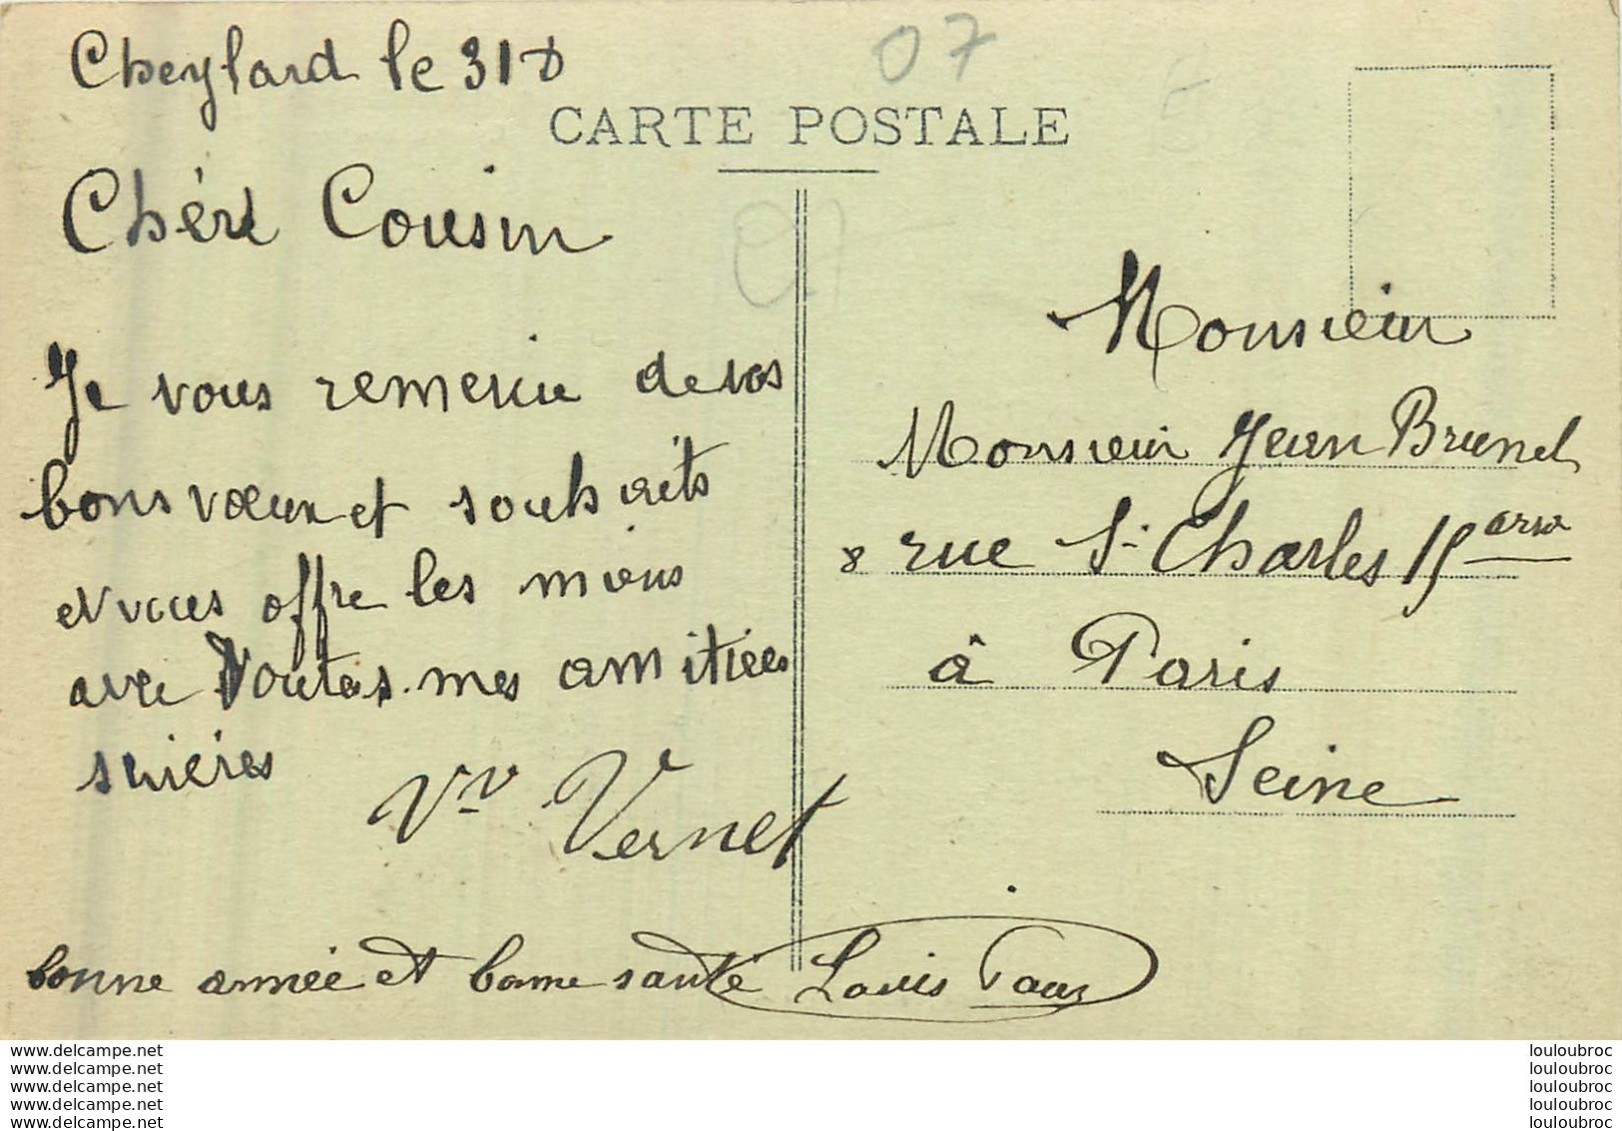 Cheylard le 31 D
07
CARTE POSTALE
Chére Cousin
Je vous remercie de vos
bons vœux et souhaits
et vous offre les miens
avec toutes mes amitiées
sincères
Vv Vernet
bonne année et bonne santé Louis Paux
Monsieur
Monsieur Jean Brunel
8 rue St Charles 15 arro
à Paris
Seine
www.delcampe.net
www.delcampe.net
www.delcampe.net
www.delcampe.net
www.delcampe.net
louloubroc
louloubroc
louloubroc
louloubroc
louloubroc